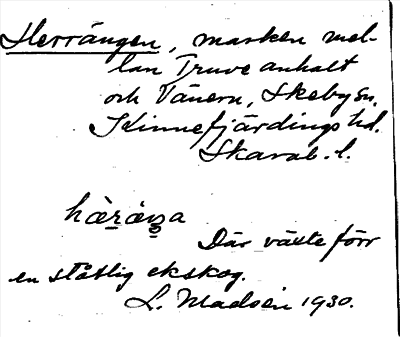 Herrängen, marken mel-
lan Truve anhalt
och Vänern, Skeby sn.
Kinnefjärdings hd.
Skarab. l.
häräŋa
Där växte förr
en ståtlig ekskog.
L. Madsén 1930.